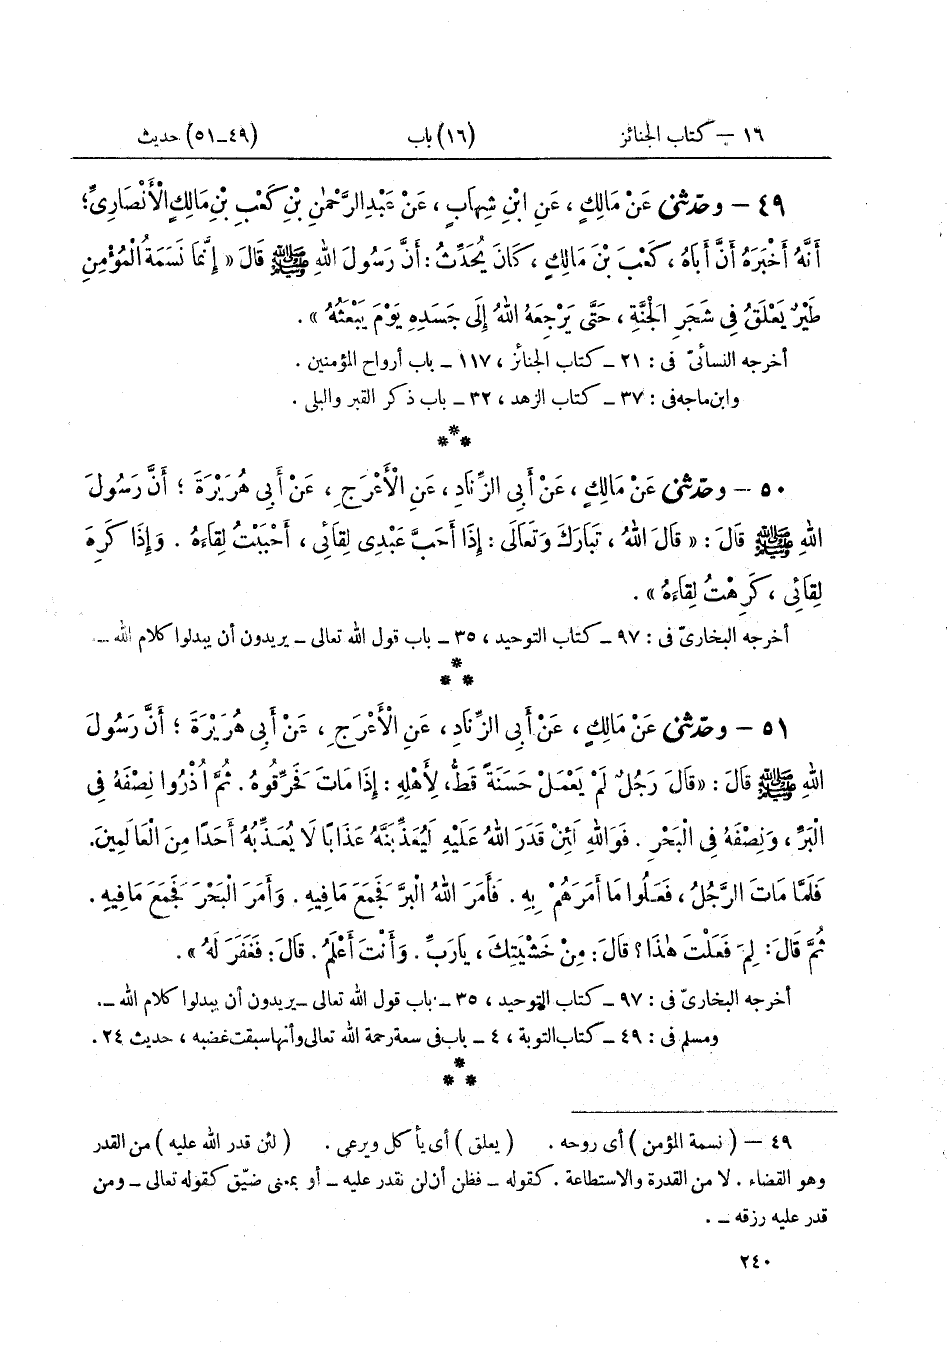 ١٦ – كتاب الجنائز (١٦) باب (٤٩–٥١) حديث
٤٩ – وحدّثنى عَنْ مَالِكٍ ، عَنِ ابْنِ شِهَابٍ ، عَنْ عَبْدِ الرَّحْمٰنِ بْنِ كَعْبِ بْنِ مَالِكٍ الْأَنْصَارِىِّ ؛
أَنَّهُ أَخْبَرَهُ أَنَّ أَبَاهُ ، كَعْبَ بْنَ مَالِكٍ ، كَانَ يُحَدِّثُ : أَنَّ رَسُولَ اللهِ ﷺ قَالَ « إِنَّمَا نَسَمَةُ الْمُؤْمِنِ
طَيْرٌ يَعْلَقُ فِى شَجَرِ الْجَنَّةِ ، حَتَّى يَرْجِعَهُ اللهُ إِلَى جَسَدِهِ يَوْمَ يَبْعَثُهُ » .
أخرجه النسائىّ فى : ٢١ – كتاب الجنائز ، ١١٧ – باب أرواح المؤمنين .
وابن ماجه فى : ٣٧ – كتاب الزهد ، ٣٢ – باب ذكر القبر والبلى .
***
٥٠ – وحدّثنى عَنْ مَالِكٍ ، عَنْ أَبِى الزِّنَادِ ، عَنِ الْأَعْرَجِ ، عَنْ أَبِى هُرَيْرَةَ ؛ أَنَّ رَسُولَ
اللهِ ﷺ قَالَ : « قَالَ اللهُ ، تَبَارَكَ وَتَعَالَى : إِذَا أَحَبَّ عَبْدِى لِقَائِى ، أَحْبَبْتُ لِقَاءَهُ . وَإِذَا كَرِهَ
لِقَائِى ، كَرِهْتُ لِقَاءَهُ » .
أخرجه البخارىّ فى : ٩٧ – كتاب التوحيد ، ٣٥ – باب قول الله تعالى – يريدون أن يبدلوا كلام الله – .
***
٥١ – وحدّثنى عَنْ مَالِكٍ ، عَنْ أَبِى الزِّنَادِ ، عَنِ الْأَعْرَجِ ، عَنْ أَبِى هُرَيْرَةَ ؛ أَنَّ رَسُولَ
اللهِ ﷺ قَالَ : « قَالَ رَجُلٌ لَمْ يَعْمَلْ حَسَنَةً قَطُّ، لِأَهْلِهِ : إِذَا مَاتَ فَحَرِّقُوهُ . ثُمَّ اُذْرُوا نِصْفَهُ فِى
الْبَرِّ ، وَنِصْفَهُ فِى الْبَحْرِ . فَوَاللهِ لَئِنْ قَدَرَ اللهُ عَلَيْهِ لَيُعَذِّبَنَّهُ عَذَابًا لَا يُعَذِّبُهُ أَحَدًا مِنَ الْعَالَمِينَ .
فَلَمَّا مَاتَ الرَّجُلُ ، فَعَلُوا مَا أَمَرَهُمْ بِهِ . فَأَمَرَ اللهُ الْبَرَّ فَجَمَعَ مَا فِيهِ . وَأَمَرَ الْبَحْرَ فَجَمَعَ مَا فِيهِ .
ثُمَّ قَالَ : لِمَ فَعَلْتَ هٰذَا ؟ قَالَ : مِنْ خَشْيَتِكَ ، يَارَبِّ . وَأَنْتَ أَعْلَمُ . قَالَ : فَغَفَرَ لَهُ » .
أخرجه البخارىّ فى : ٩٧ – كتاب التوحيد ، ٣٥ – باب قول الله تعالى – يريدون أن يبدلوا كلام الله – .
ومسلم فى : ٤٩ – كتاب التوبة ، ٤ – باب فى سعة رحمة الله تعالى وأنها سبقت غضبه ، حديث ٢٤ .
***
٤٩ – ( نسمة المؤمن ) أى روحه . ( يعلق ) أى يأكل ويرعى . ( لئن قدر الله عليه ) من القدر
وهو القضاء . لا من القدرة والاستطاعة . كقوله – فظن أن لن نقدر عليه – أو بمعنى ضيّق كقوله تعالى – ومن
قدر عليه رزقه – .
٢٤٠